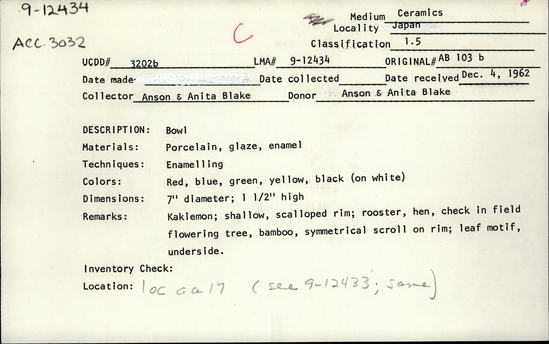 9-12434
Medium Ceramics
ACC. 3032
C
Locality Japan
Classification 1.5
UCDD# 3202b LMA# 9-12434 ORIGINAL# AB 103 b
Date made Date collected Date received Dec. 4, 1962
Collector Anson & Anita Blake Donor Anson & Anita Blake
DESCRIPTION: Bowl
Materials: Porcelain, glaze, enamel
Techniques: Enamelling
Colors: Red, blue, green, yellow, black (on white)
Dimensions: 7" diameter; 1 1/2" high
Remarks: Kakiemon; shallow, scalloped rim; rooster, hen, check in field
flowering tree, bamboo, symmetrical scroll on rim; leaf motif,
underside.
Inventory Check:
Location: loc aa17 (see 9-12433; same)